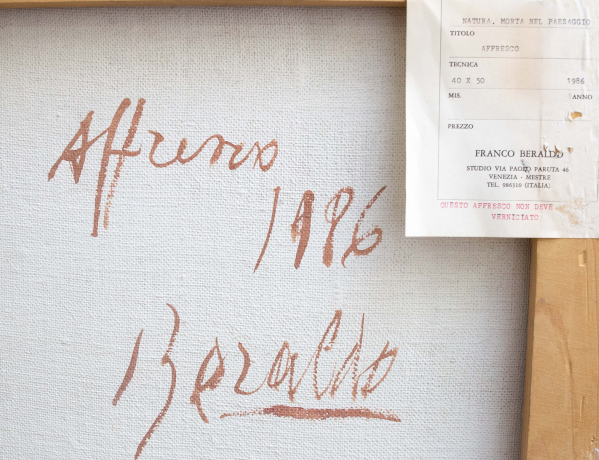 Affresco
1986
Beraldo
NATURA. MORTA NEL PAESAGGIO
TITOLO
AFFRESCO
TECNICA
40 X 50 1986
MIS. ANNO
PREZZO
FRANCO BERALDO
STUDIO VIA PAOLO PARUTA 46
VENEZIA - MESTRE
TEL. 986519 (ITALIA)
QUESTO AFFRESCO NON DEVE
VERNICIATO